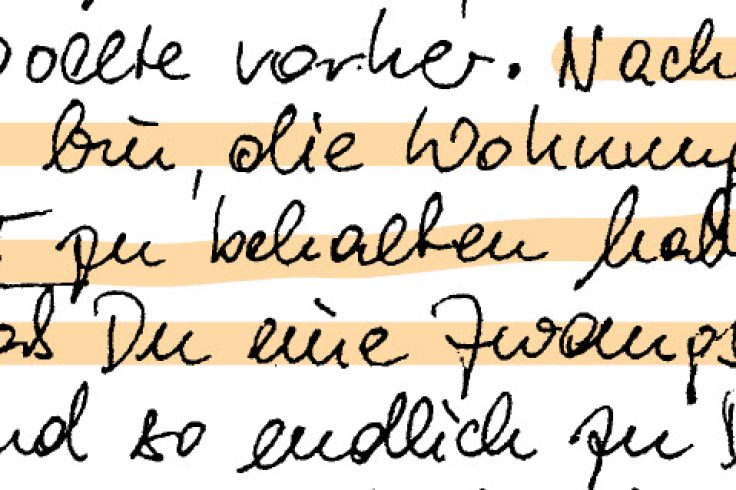 wollte vorher. Nach
bin, die Wohnung
zu behalten hab
daß Du eine Zwangs
und so endlich zu D